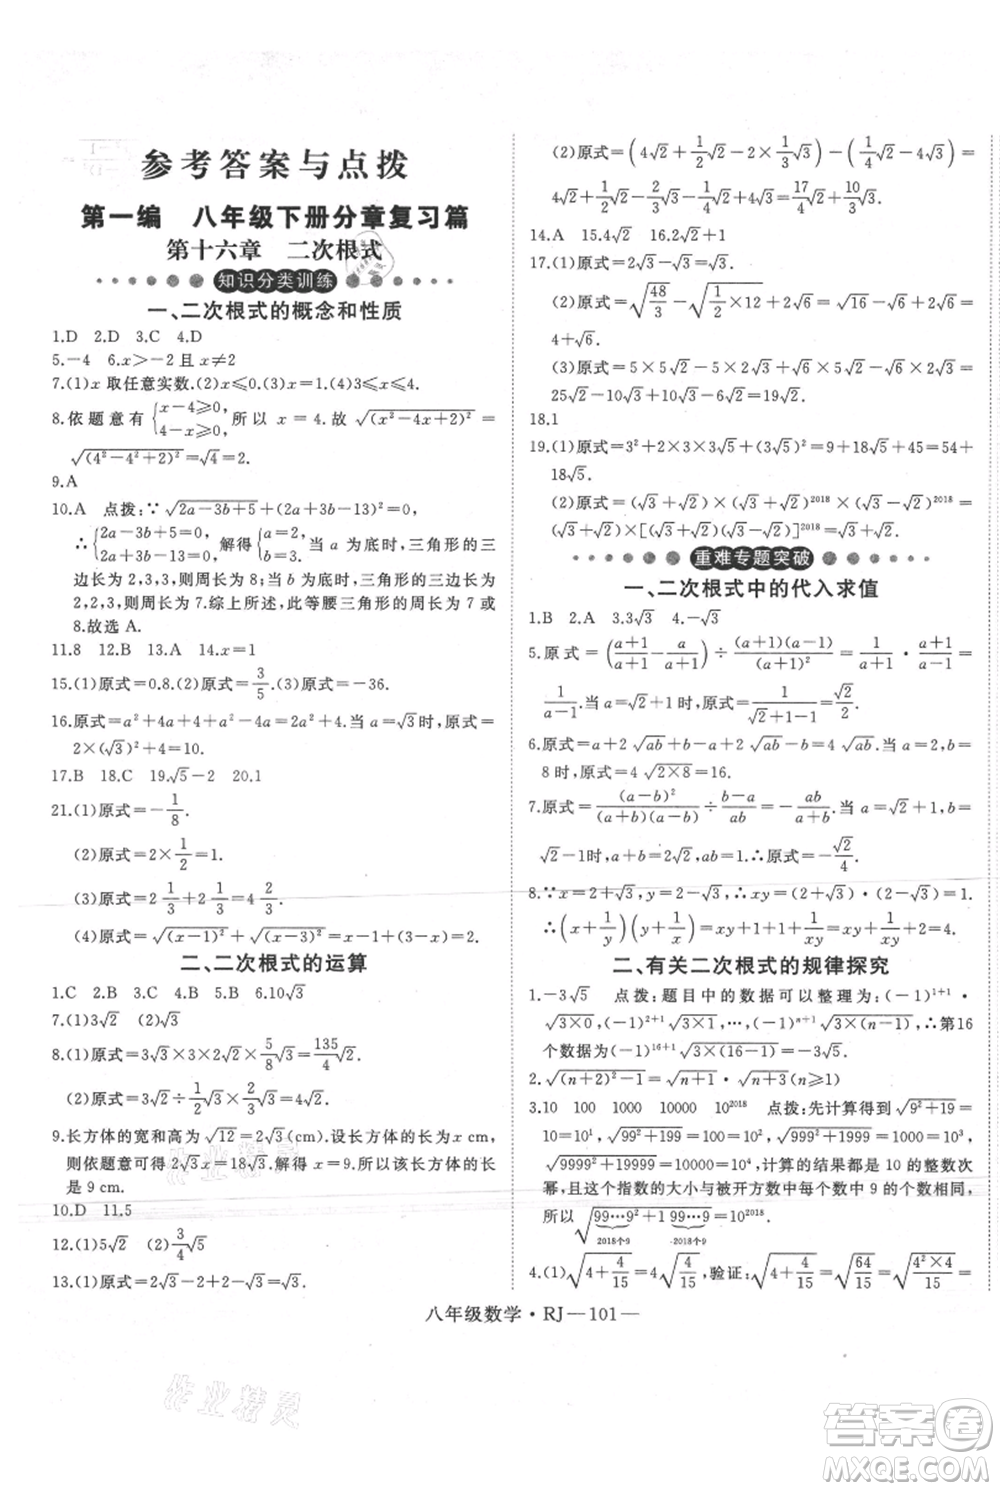 参考答案与点拨
第一编 八年级下册分章复习篇
第十六章 二次根式
知识分类训练
一、二次根式的概念和性质
1.D 2.D 3.C 4.D
5.-4 6.x>-2 且 x≠2
7.(1)x 取任意实数.(2)x⩽0.(3)x⩾1.
8.依题意有{x-4⩾0, 4-x⩾0,所以 x=4.故 √((x²-4x+2)²)=
√((4²-4²+2)²)=√4=2.
9.A
10.A 点拨:∵√(2a-3b+5)+(2a+3b-13)²=0,
∴{2a-3b+5=0, 2a+3b-13=0,解得{a=2, b=3.当 a 为底时,三角形的三
边长为2,3,3,则周长为8;当 b 为底时,三角形的三边长为
2,2,3,则周长为7.综上所述,此等腰三角形的周长为7或
8.故选 A.
11.8 12.B 13.A 14.x=1
15.(1)原式=0.8.(2)原式=3/5.(3)原式=-36.
16.原式=a²+4a+a²-4a=2a².当 a=√3时,原式=
2×(√3)²+4=10.
17.B 18.C 19.√5-2 20.1
21.(1)原式=-1/8.
(2)原式=2×1/2=1.
(3)原式=2 1/3+2 1/3=4 2/3.
(4)原式=√((x-1)²)+√((x-3)²)=x-1+3-x=2.
二、二次根式的运算
1.C 2.B 3.C 4.D 5.B 6.10√3
7.(1)3√2 (2)√2
8.(1)原式=3√3×3×2√2×5/8×√3=135/4√2.
(2)原式=3√2÷1/2√2×2√3=12√3.
9.长方体的宽和高为√12=2√3(cm).设长方体的长为 x cm,
则依题意可得2√3x=18√3.解得 x=9.所以该长方体的长
是 9 cm.
10.D 11.5
12.(1)5√2 (2)3/4√5
13.(1)原式=2√3-2√2+2√2-√3=√3.
(2)原式=(4√2+1/2√2-2/3√3)-(1/2√2-4√3)=
4√2+1/2√2-2/3√3-1/2√2+4√3=4√2+10/3√3.
14.A 15.4√2 16.√2+1
17.(1)原式=2√3-√3=√3.
(2)原式=√(48/3)-√(1/2×12)+2√6=√16-√6+2√6=
4+√6.
(3)原式=5×5√2+5×2√2-5√2×2√2-2√2×2√2=
25√2+10√2-20-8=35√2-28.
18.1
19.(1)原式=3²+2×3×3√5+(3√5)²=9+18√5+45=54+
18√5.
(2)原式=(√3+√2)×(√3+√2)²⁰¹⁸×(√3-√2)²⁰¹⁸=
(√3+√2)×[(√3+√2)(√3-√2)]²⁰¹⁸=√3+√2.
重难专题突破
一、二次根式中的代入求值
1.B 2.A 3.3√3 4.-√3
5.原式=((a+1)/(a+1)-a/(a+1))÷((a+1)(a-1))/(a+1)²=1/(a+1)·(a+1)/(a-1)=
1/(a-1).当 a=√2+1时,原式=1/(√2+1-1)=√2/2.
6.原式=a+2√ab+b-a+2√ab-b=4√ab.当 a=2,b=
8时,原式=4√(2×8)=16.
7.原式=(a-b)²/((a+b)(a-b))÷(b-a)/ab=-ab/(a+b).当 a=√2+1,b=
√2-1时,a+b=2√2,ab=1.故原式=-√2/4.
8.∵x=2+√3,y=2-√3,∴xy=(2+√3)·(2-√3)=1.
∴(x+1/y)(y+1/x)=xy+1+1+1/xy=xy+1/xy+2=4.
二、有关二次根式的规律探究
1.-3√5 点拨:题目中的数据可以整理为:(-1)¹⁺¹·
√(3×0),(-1)²⁺¹√(3×1),…,(-1)ⁿ⁺¹√(3×(n-1)),∴第16
个数据为(-1)¹⁶⁺¹√(3×(16-1))=-3√5.
2.√((n+2)²-...)
3.10 100 1000 10000 10²⁰¹⁸ 点拨:先计算得出√(9²+19)=
10,√(99²+199)=100,√(999²+1999)=1000,
√(9999²+19999)=10000,计算的结果都是10的整数次
幂,且这个指数的大小与被开方数中每个数中 9 的个数相同,
所以√(99…9²+199…9)=10²⁰¹⁸.
2018个9 2018个9
4.(1)√(4+4/15)=4√(4/15),验证:√(4+4/15)=√(64/15)=√((4²×4)/15)=
八年级数学·RJ—101—
作业精灵
答案卷
MXQE.COM